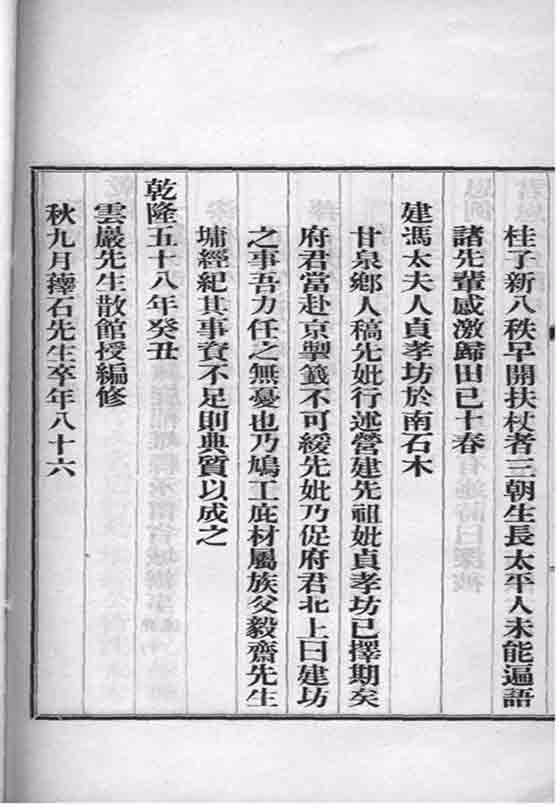 桂子新八秩早開扶杖者三朝生長太平人未能遍語
諸先輩感激歸田已十春
建馮太夫人貞孝坊於南石木
甘泉鄉人稿先妣行述營建先祖妣貞孝坊已擇期矣
府君當赴京掣籤不可緩先妣乃促府君北上曰建坊
之事吾力任之無憂也乃鳩工庀材屬族父毅齋先生
墉經紀其事資不足則典質以成之
乾隆五十八年癸丑
雲巖先生散館授編修
秋九月蘀石先生卒年八十六